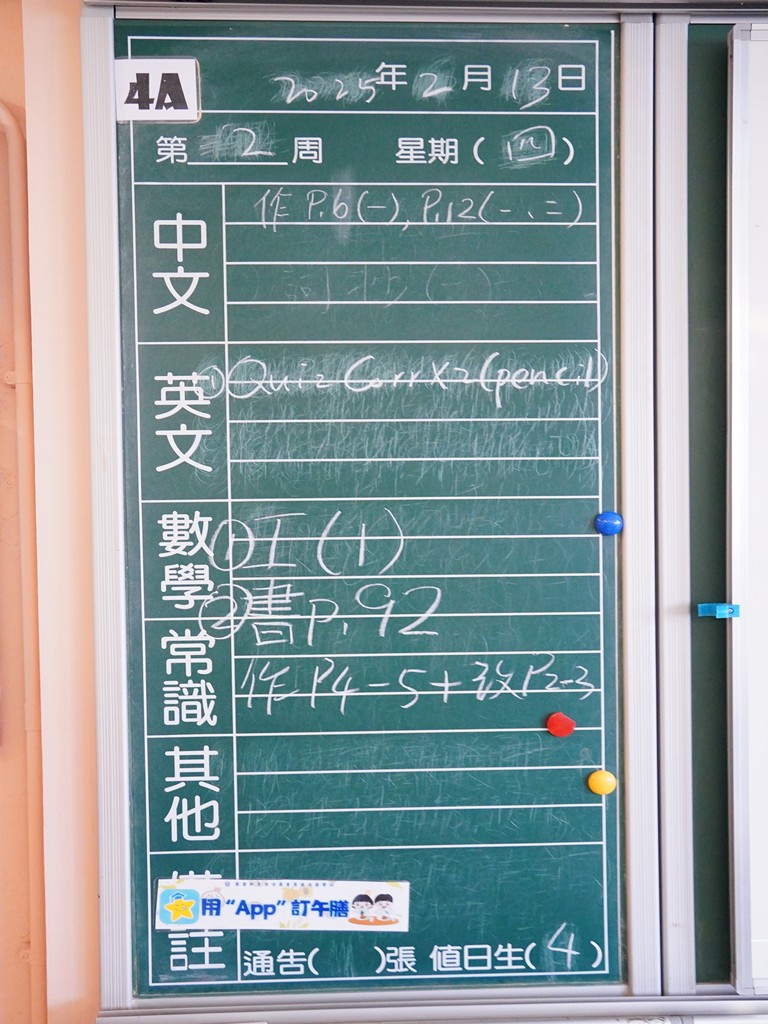 4A
2025年2月13日
第2周 星期(四)
中文
作 P.6(一), P.12(一、二)
詞抄(一)
英文
① Quiz Corr X2(pencil)
數學
① 工(1)
② 書P.92
常識
作 P4-5+改P2-3
其他
註
用“App”訂午膳
通告( )張 值日生(4)